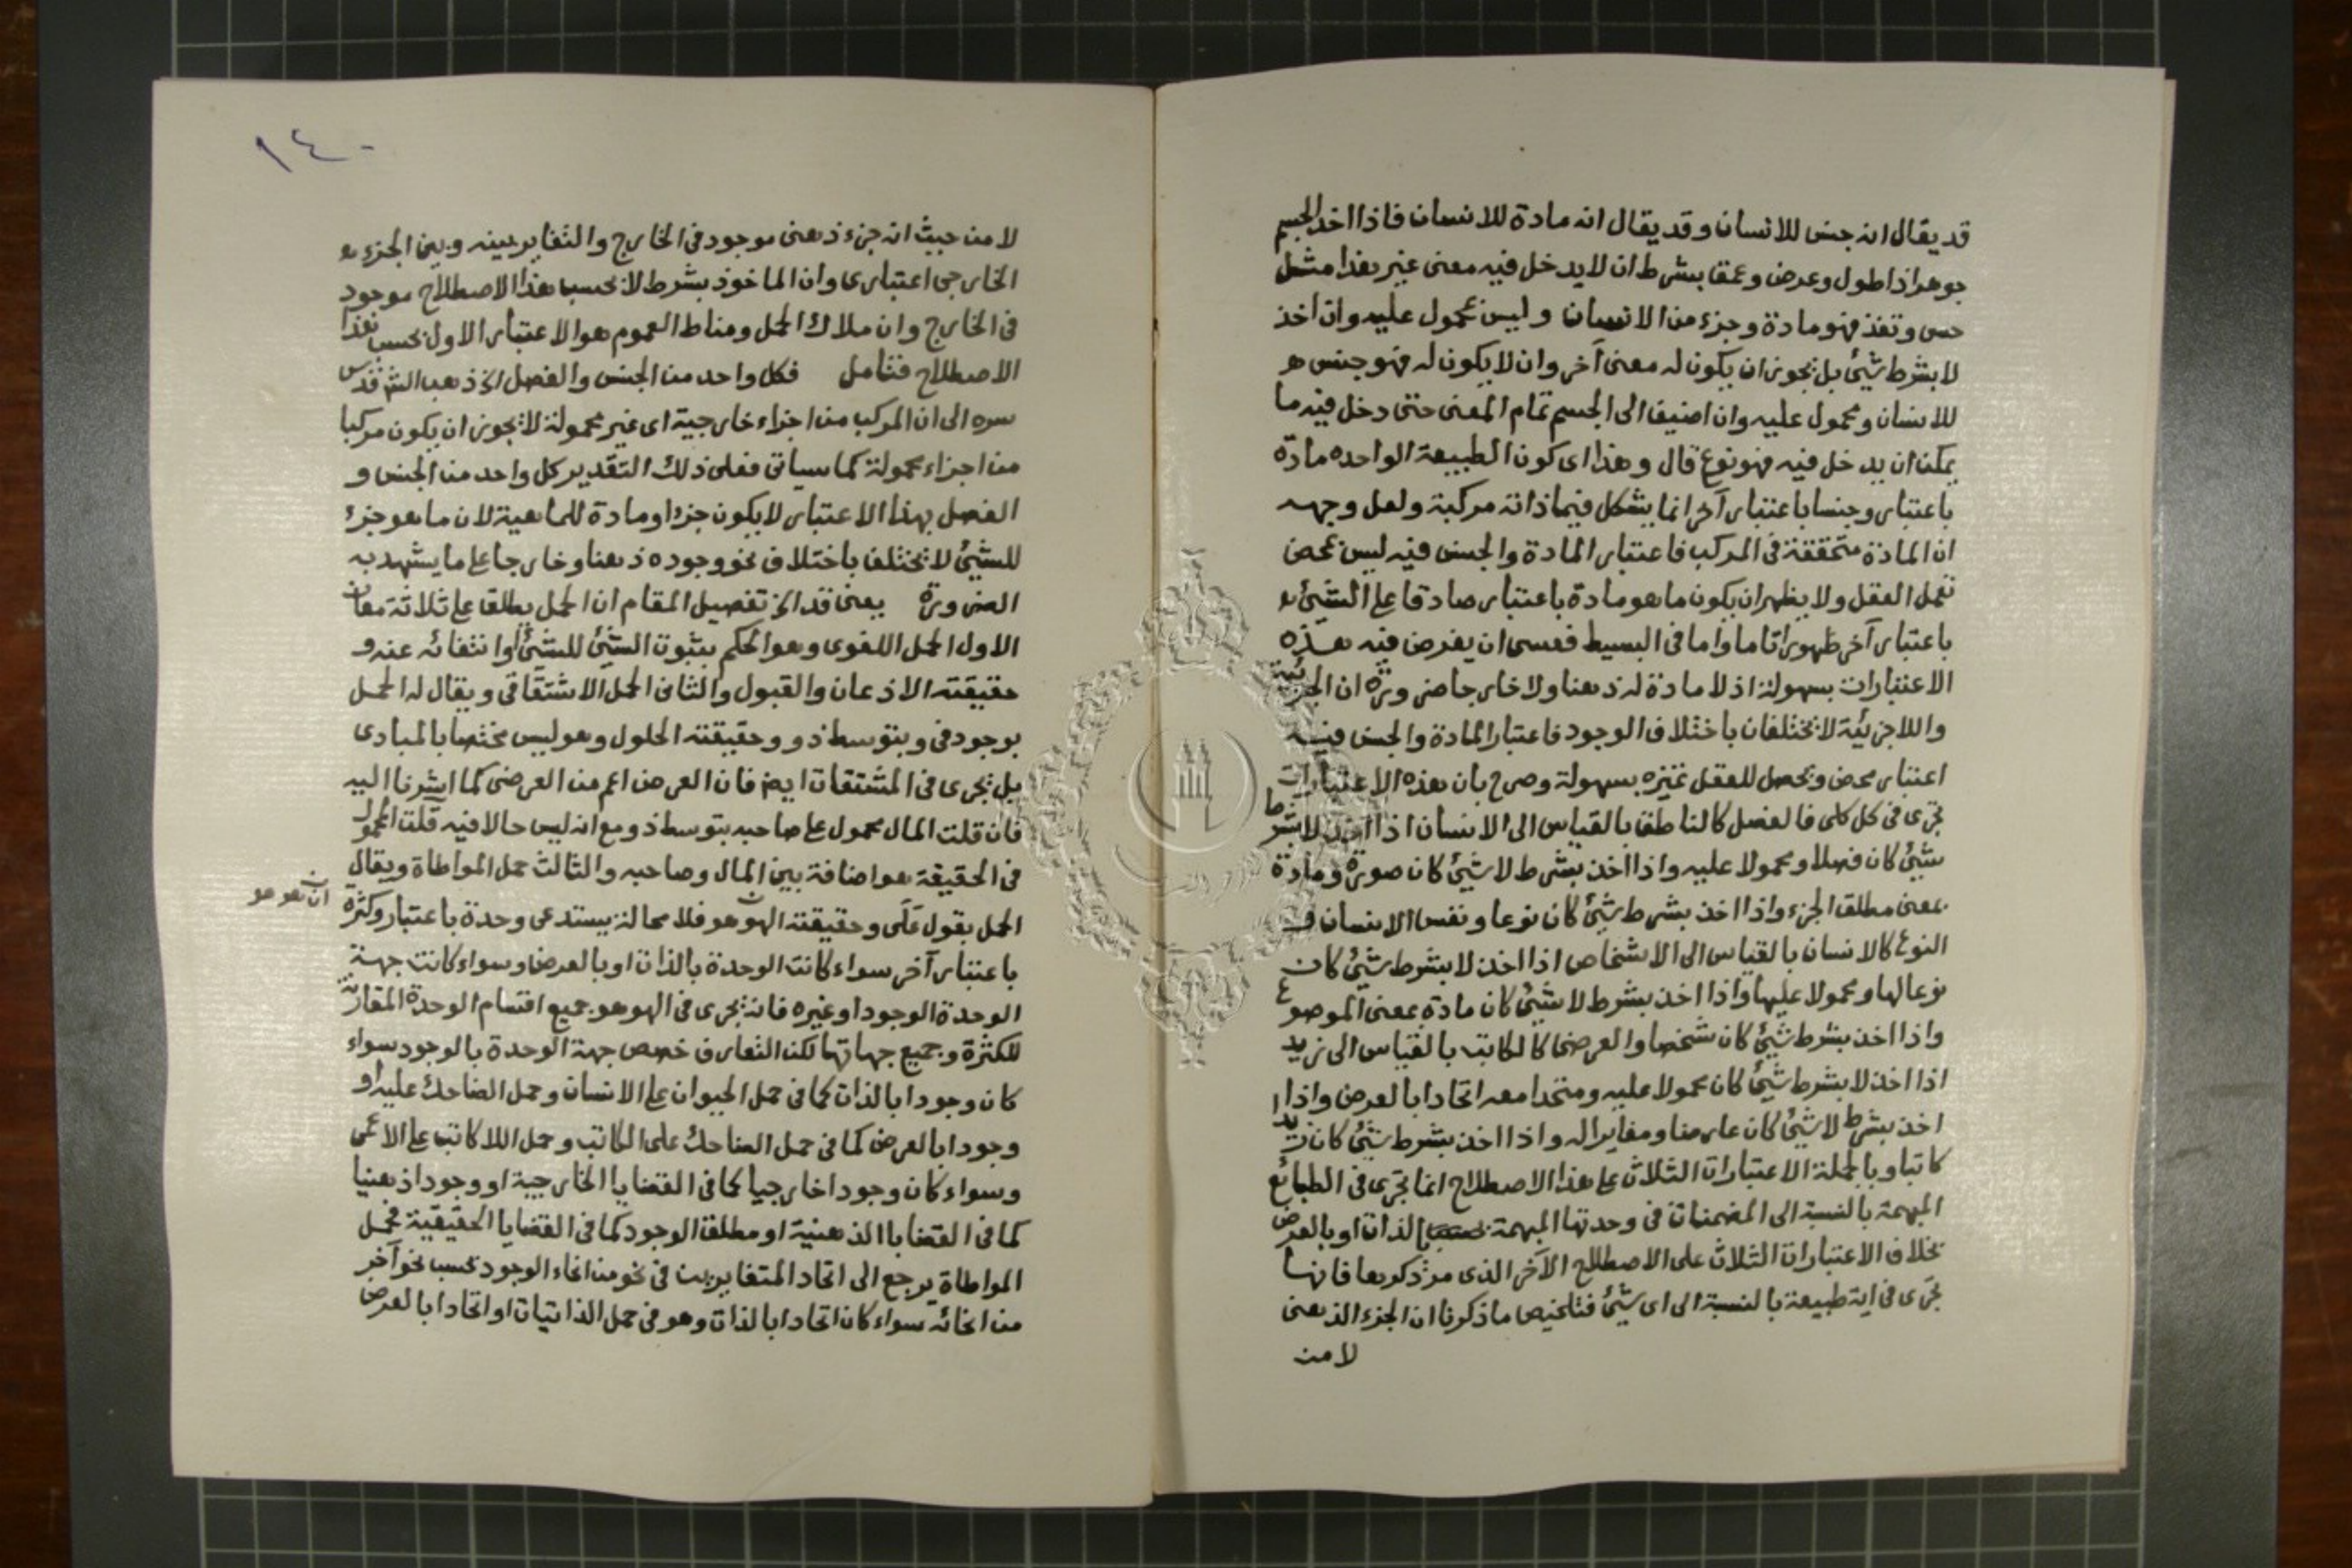 قد يقال انه جنس للانسان وقد يقال انه مادة للانسان فاذا اخذ الجسم
جوهرا ذا طول وعرض وعمق بشرط ان لا يدخل فيه معنى غير هذا مثل
حس وتغذ فهو مادة وجزء من الانسان وليس بمحمول عليه وان اخذ
لا بشرط شيئ بل بجوز ان يكون له معنى آخر وان لا يكون له فهو جنس
للانسان ومحمول عليه وان اضيف الى الجسم تمام المعنى حتى دخل فيه ما
يمكن ان يدخل فيه فهو نوع قال وهذا اى كون الطبيعة الواحده مادة
باعتبار وجنسا باعتبار آخر انما يشكل فيما ذاته مركبة ولعل وجهه
ان المادة متحققة فى المركب فاعتبار المادة والجنس فيه ليس بمحض
تعمل العقل ولا يظهر ان يكون ما هو مادة باعتبار صادقا على الشيئ
باعتبار آخر ظهورا تاما واما فى البسيط فعسى ان يفرض فيه هذه
الاعتبارات بسهولة اذ لا مادة له ذهنا ولا خارجا ضرورة ان الجزئية
واللاجزئية لا تختلفان باختلاف الوجود فاعتبار المادة والجنس فيه
اعتبار محض ويحصل للعقل تميزه بسهولة وصرح بان هذه الاعتبارات
تجرى فى كل كلى فالفصل كالناطق بالقياس الى الانسان اذا اخذ لا بشرط
شيئ كان فصلا ومحمولا عليه واذا اخذ بشرط لا شيئ كان صورة ومادة
بمعنى مطلق الجزء واذا اخذ بشرط شيئ كان نوعا ونفس الانسان و
النوع كالانسان بالقياس الى الاشخاص اذا اخذ لا بشرط شيئ كان
نوعا لها ومحمولا عليها واذا اخذ بشرط لا شيئ كان مادة بمعنى الموضوع
واذا اخذ بشرط شيئ كان شخصا والعرضى كالكاتب بالقياس الى زيد
اذا اخذ لا بشرط شيئ كان محمولا عليه ومتحدا معه اتحادا بالعرض واذا
اخذ بشرط لا شيئ كان عارضا ومغايرا له واذا اخذ بشرط شيئ كان زيد
كاتبا وبالجملة الاعتبارات الثلاث على هذا الاصطلاح انما تجرى فى الطبائع
المبهمة بالنسبة الى المضمنات فى وحدتها المبهمة بالذات او بالعرض
بخلاف الاعتبارات الثلاث على الاصطلاح الآخر الذى مر ذكرها فانها
تجرى فى اية طبيعة بالنسبة الى اى شيئ فتلخيص ما ذكرنا ان الجزء الذهنى
لا من
١٤٠
لا من حيث انه جزء ذهنى موجود فى الخارج والتغاير بينه وبين الجزء
الخارجى اعتبارى وان الماخوذ بشرط لا بحسب هذا الاصطلاح موجود
فى الخارج وان ملاك الحمل ومناط العموم هو الاعتبار الاول بحسب هذا
الاصطلاح فتامل فكل واحد من الجنس والفصل الخ ذهب الش قدس
سره الى ان المركب من اجزاء خارجية اى غير محمولة لا يجوز ان يكون مركبا
من اجزاء محمولة كما سياتى فعلى ذلك التقدير كل واحد من الجنس و
الفصل بهذا الاعتبار لا يكون جزءا ومادة للماهية لان ما هو جزء
للشيئ لا يختلف باختلاف نحو وجوده ذهنا وخارجا على ما يشهد به
الضرورة يعنى قد الخ تفصيل المقام ان الحمل يطلق على ثلاثة معان
الاول الحمل اللغوى وهو الحكم بثبوت الشيئ للشيئ او انتفائه عنه و
حقيقته الاذعان والقبول والثانى الحمل الاشتقاقى ويقال له الحمل
بوجود فى وبتوسط ذو وحقيقته الحلول وهو ليس مختصا بالمبادى
بل يجرى فى المشتقات ايض فان العرض اعم من العرضى كما اشرنا اليه
فان قلت المال محمول على صاحبه بتوسط ذو مع انه ليس حالا فيه قلت المحمول
فى الحقيقة هو اضافة بين المال وصاحبه والثالث حمل المواطاة ويقال
الحمل بقول على وحقيقته الهو هو فلا محالة يستدعى وحدة باعتبار وكثرة
باعتبار آخر سواء كانت الوحدة بالذات او بالعرض وسواء كانت جهة
الوحدة الوجود او غيره فانه يجرى فى الهو هو جميع اقسام الوحدة المقارنة
للكثرة وجميع جهاتها لكن التعارف خصص جهة الوحدة بالوجود سواء
كان وجودا بالذات كما فى حمل الحيوان على الانسان وحمل الضاحك عليه او
وجودا بالعرض كما فى حمل الضاحك على الكاتب وحمل اللاكاتب على الاعمى
وسواء كان وجودا خارجيا كما فى القضايا الخارجية او وجودا ذهنيا
كما فى القضايا الذهنية او مطلق الوجود كما فى القضايا الحقيقية فحمل
المواطاة يرجع الى اتحاد المتغايرين فى نحو من انحاء الوجود بحسب نحو آخر
من انحائه سواء كان اتحادا بالذات وهو فى حمل الذاتيات او اتحادا بالعرض